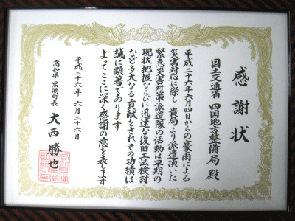 感謝状
国土交通省 四国地方整備局 殿
平成二十六年六月四日からの豪雨による
災害対応に際し 貴局より派遣頂いた
緊急災害対策派遣隊の活動は早期の
現状把握ならびに迅速な復旧工法検討
など多大なる貢献をされその功績は
誠に顕著であります
よってここに深く感謝の意を表します
平成二十六年 六月二十六日
高知県 黒潮町長 大西勝也